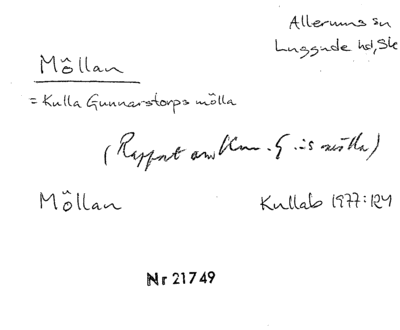 Allerums sn
Luggude hd, Sk
Möllan
= Kulla Gunnarstorps mölla
(Rapport om Kun. G :is mölla)
Möllan Kullab 1977:124
Nr 21749